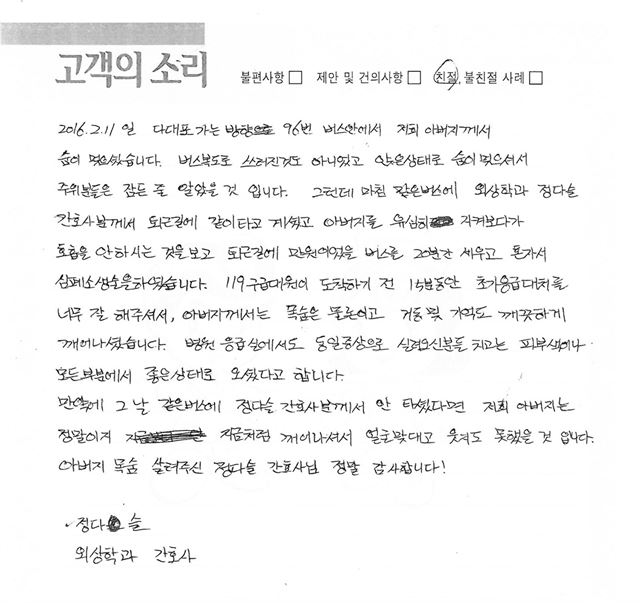 고객의 소리
불편사항 □ 제안 및 건의사항 □ 친절, 불친절 사례 □
2016.2.11 일 다대포 가는 방향으로 96번 버스안에서 저희 아버지께서
숨이 멎으셨습니다. 버스복도로 쓰러진것도 아니었고 앉은상태로 숨이 멎으셔서
주위분들은 잠든 줄 알았을 것 입니다. 그런데 마침 같은버스에 외상학과 정다슬
간호사님께서 퇴근길에 같이타고 계셨고 아버지를 유심히 지켜보다가
호흡을 안하시는 것을보고 퇴근길에 만원이었을 버스를 20분간 세우고 혼자서
심폐소생술을하였습니다. 119구급대원이 도착하기 전 15분동안 초기응급대처를
너무 잘 해주셔서, 아버지께서는 목숨은 물론이고 거동 및 기억도 깨끗하게
깨어나셨습니다. 병원 응급실에서도 동일증상으로 실려오신분들 치고는 피부색이나
모든부분에서 좋은상태로 오셨다고 합니다.
만약에 그 날 같은버스에 정다슬 간호사님께서 안 타셨다면 저희 아버지는
정말이지 지금처럼 깨어나셔서 얼굴맞대고 웃지도 못했을 것 입니다.
아버지 목숨 살려주신 정다슬 간호사님 정말 감사합니다!
정다 슬
외상학과 간호사